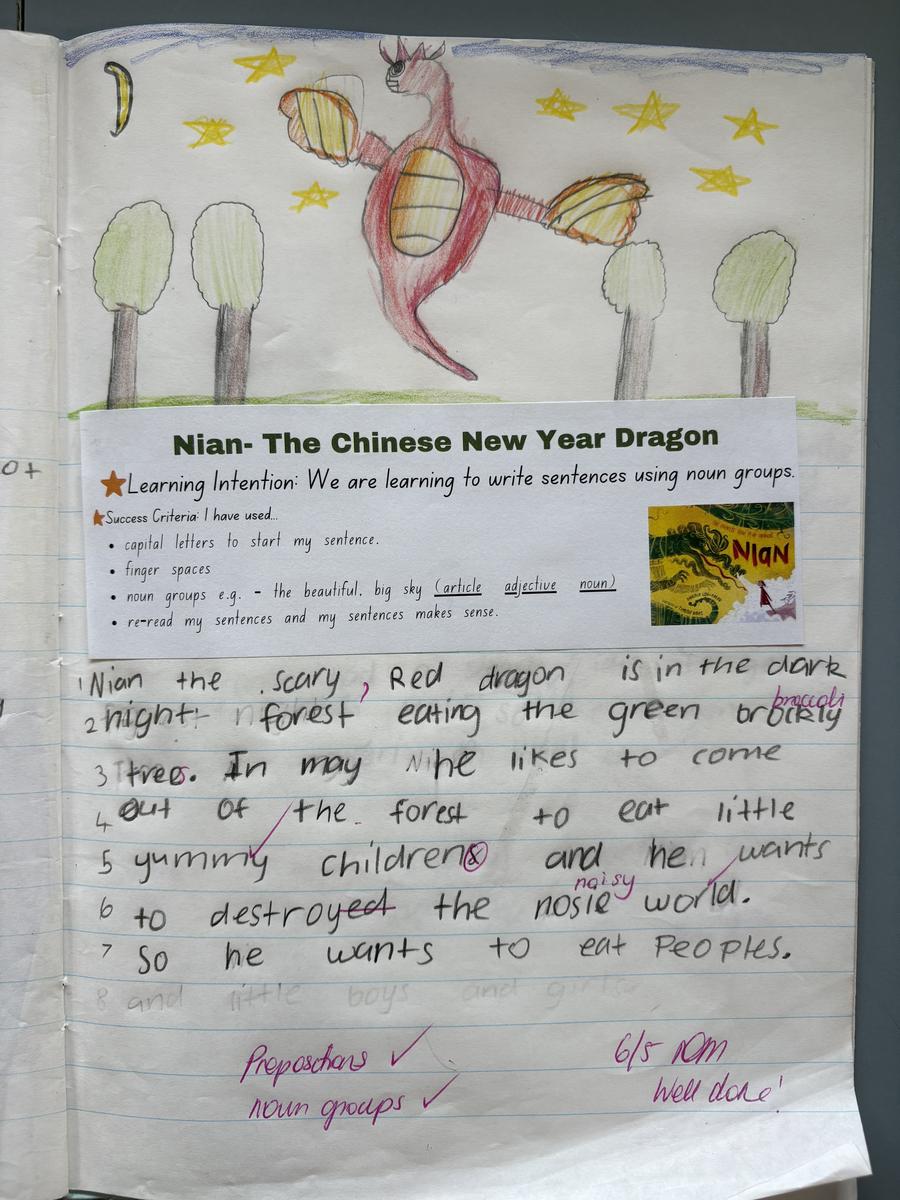 ot
Nian- The Chinese New Year Dragon
Learning Intention: We are learning to write sentences using noun groups.
Success Criteria: I have used...
• capital letters to start my sentence.
• finger spaces
• noun groups e.g. - the beautiful, big sky (article adjective noun)
• re-read my sentences and my sentences makes sense.
NIAN
1 Nian the scary, Red dragon is in the dark
broccoli
2 night forest eating the green brockly
3 trees. In may he likes to come
4 out of the forest to eat little
5 yummy childrens and he wants
noisy
6 to destroyed the nosie world.
7 So he wants to eat Peoples.
8 and little boys and girls
Prepositions ✓
6/5 nom
noun groups ✓
Well done!